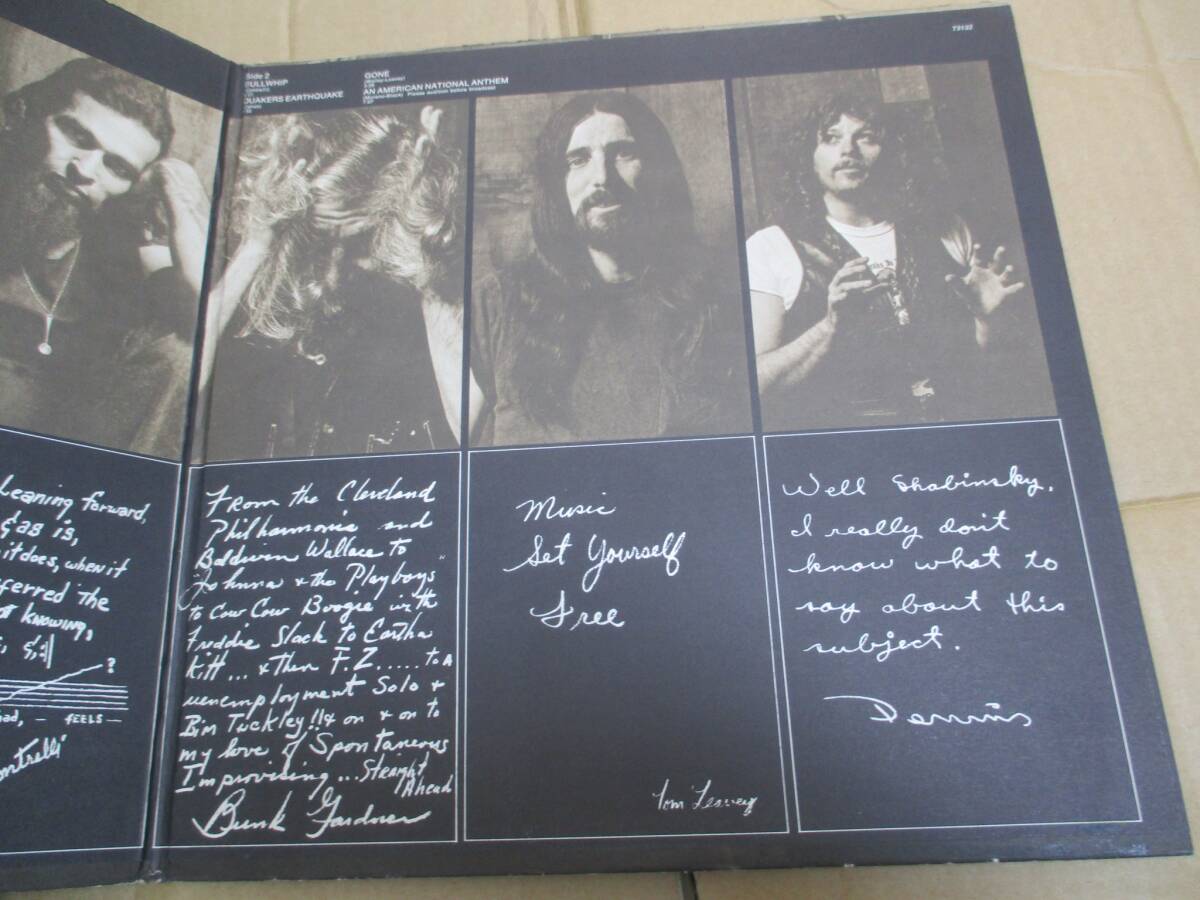 73132
Side 2
BULLWHIP
QUAKERS EARTHQUAKE
GONE
(Morley-Leavey)
AN AMERICAN NATIONAL ANTHEM
Please audition before broadcast
Leaning forward,
& as is,
it does, when it
ferred the
t knowing,
?
ad, — FEELS —
From the Cleveland
Philharmonic and
Baldwin Wallace to
"Johnna + the Playboys"
to Cow Cow Boogie with
Freddie Slack to Eartha
Kitt... + then F.Z..... to a
unemployment Solo +
Bim Tuckley!! + on + on to
my love of Spontaneous
Improvising... Straight
Ahead
Bunk Gardner
Music
Set Yourself
Free
Tom Leavey
Well Shabinsky.
I really don't
know what to
say about this
subject.
Dennis